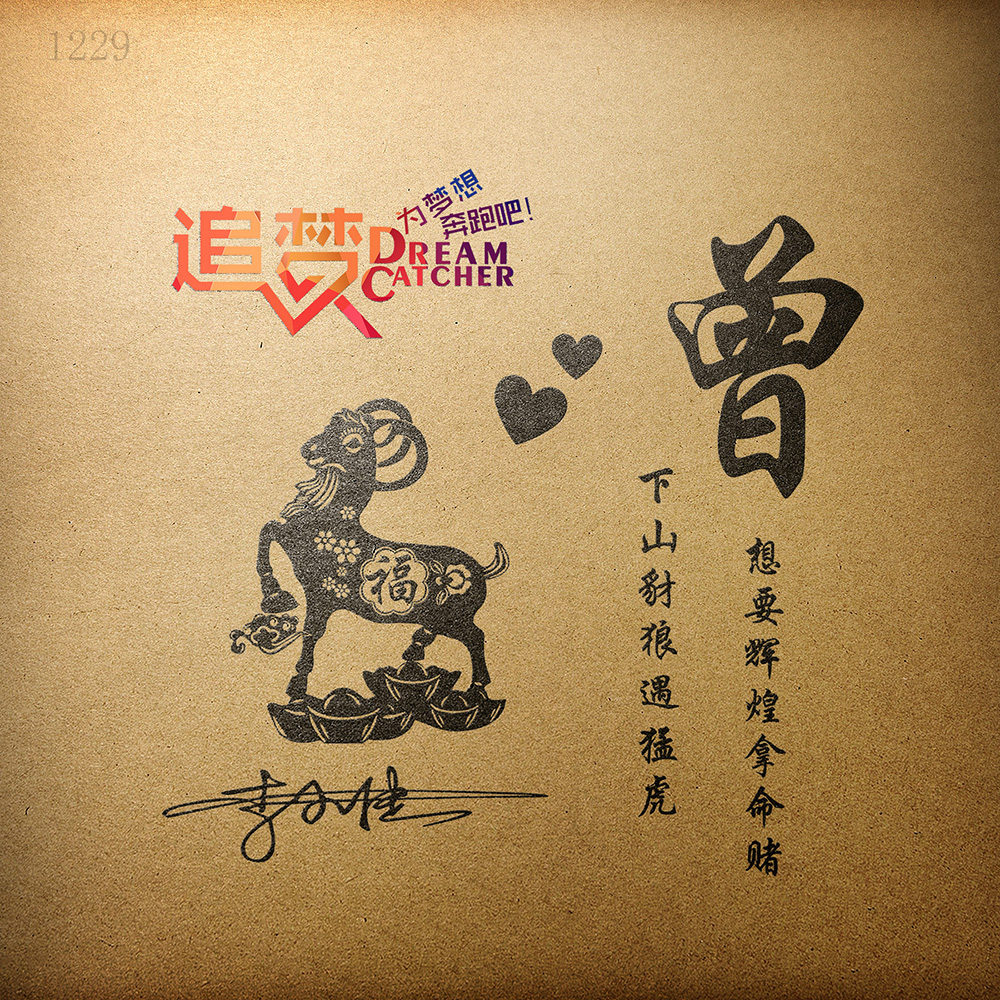 1229
追梦
为梦想
奔跑吧！
DREAM
CATCHER
曾
想要辉煌拿命赌
下山豺狼遇猛虎
福